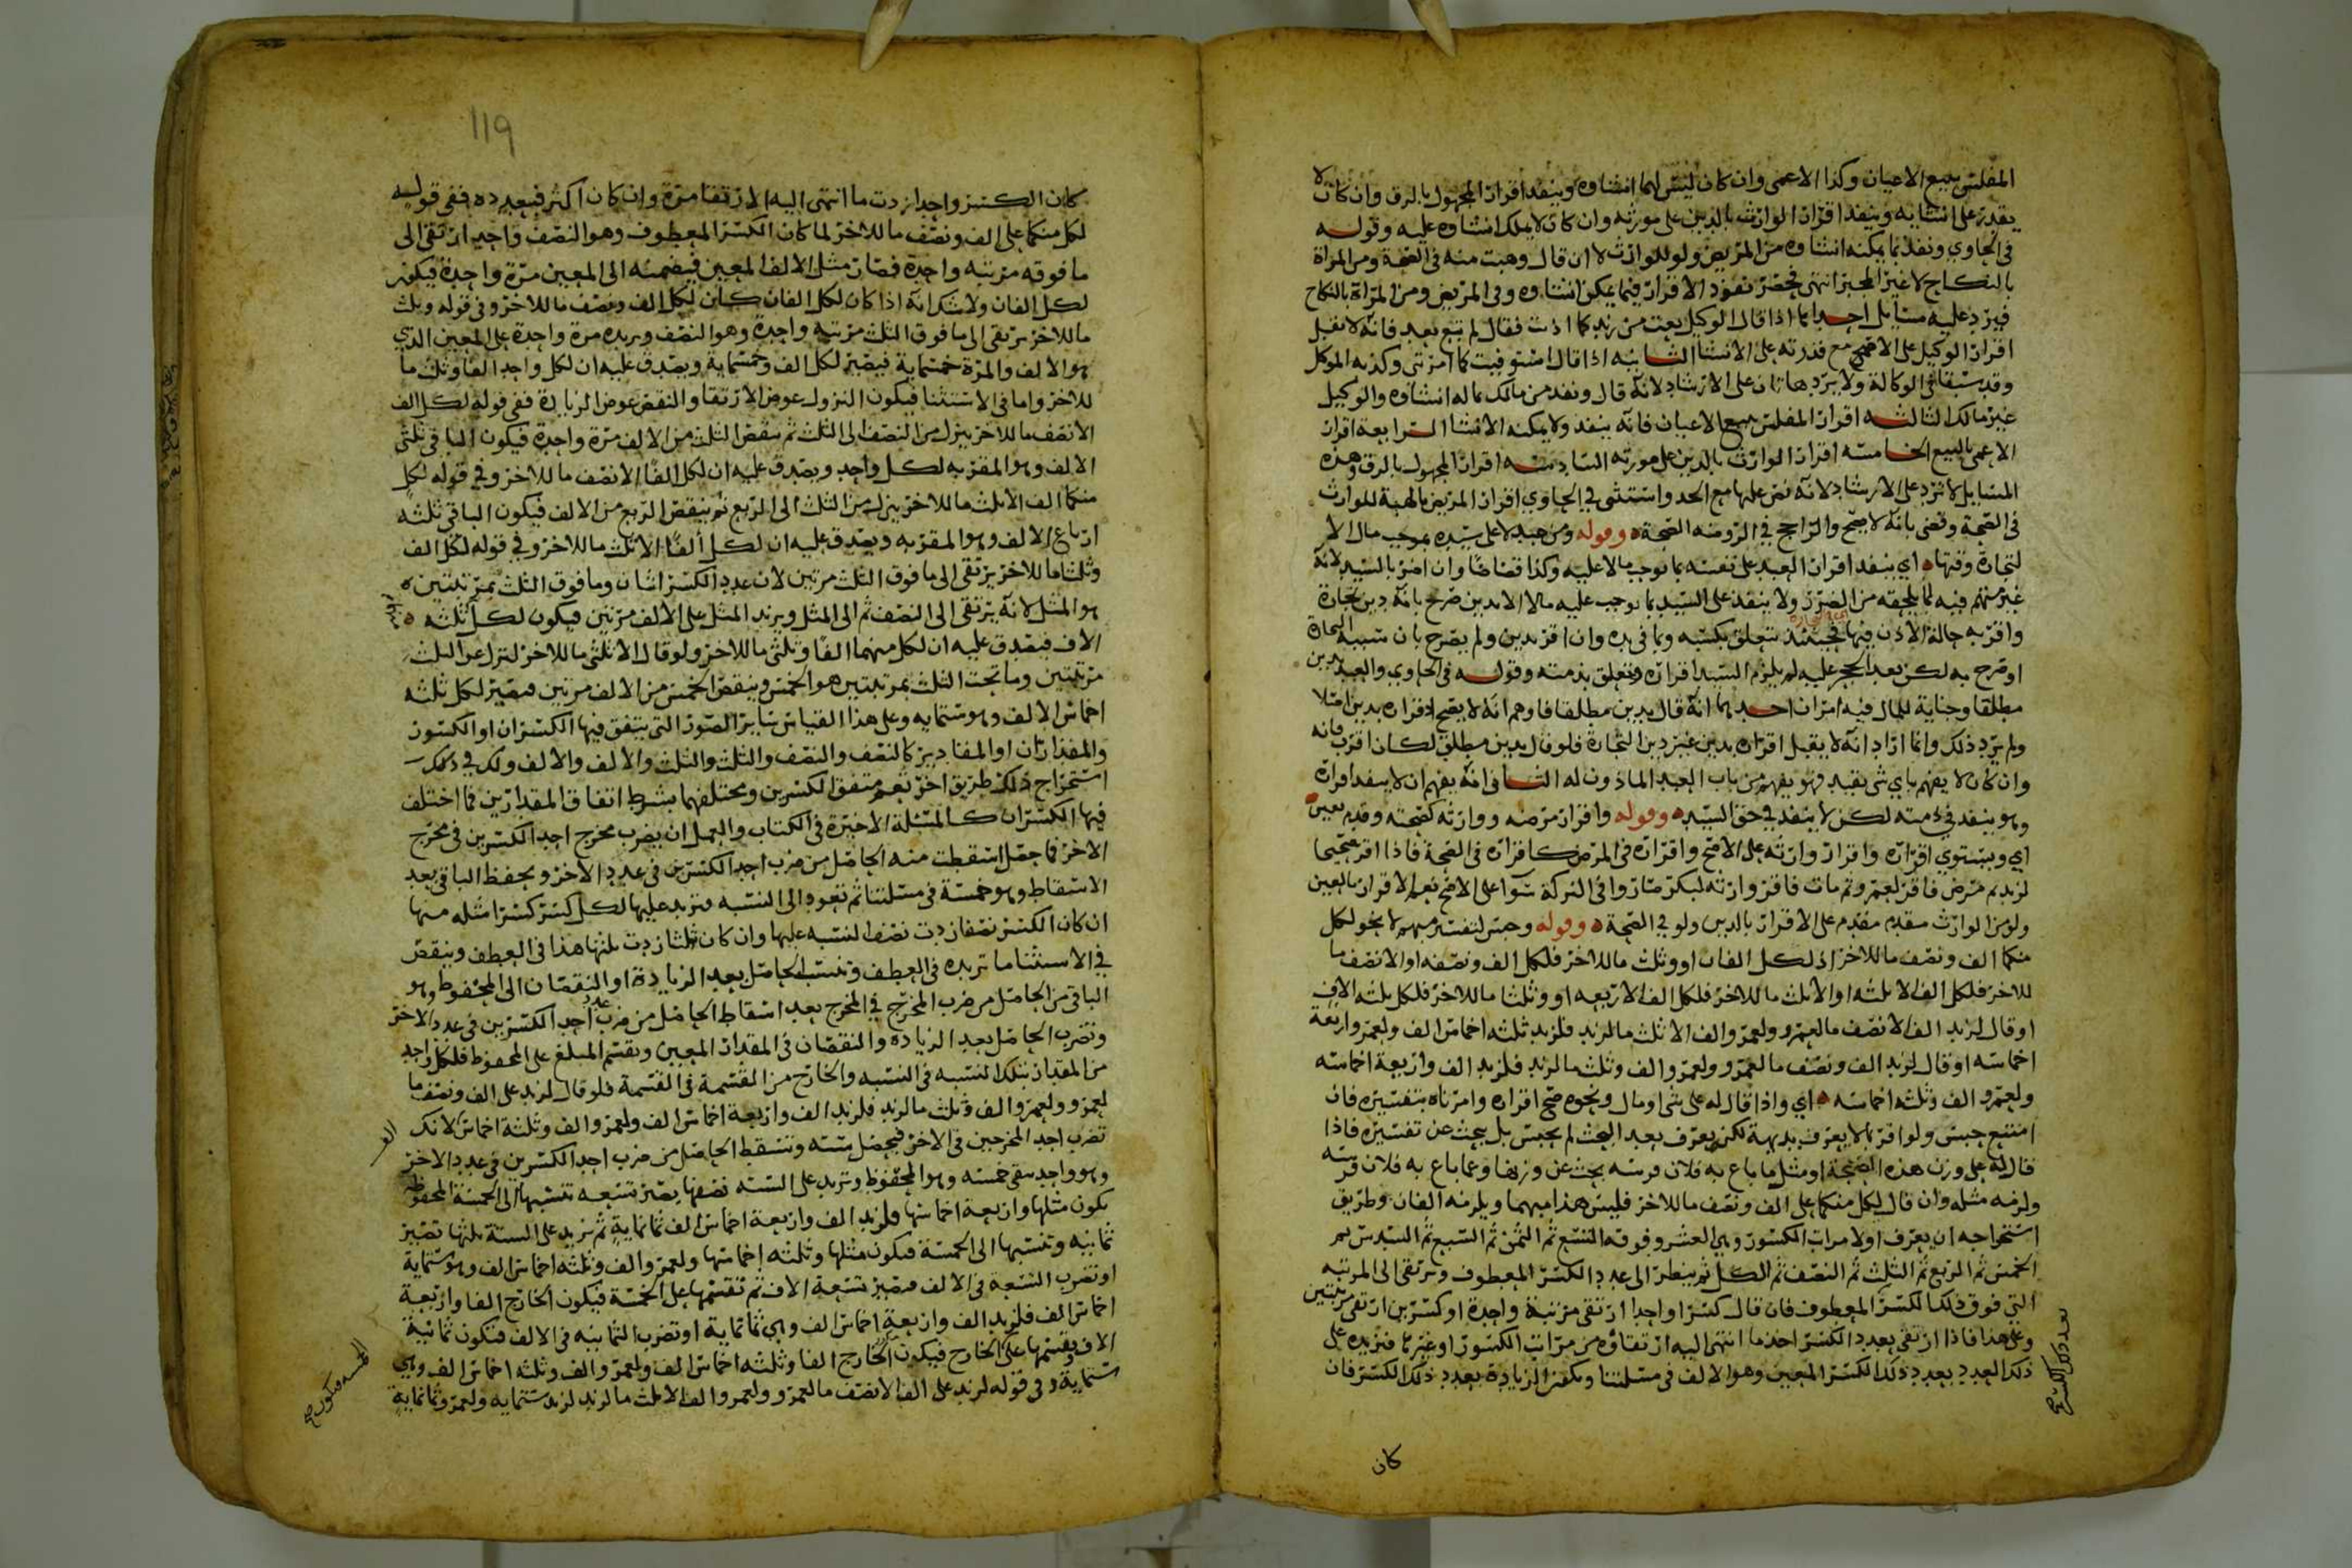 المفلس ببيع الاعيان وكذا الاعمى وان كان ليس لهما انشاوه وينفد اقرار المجهول بالرق وان كان لا
يقدر على انشايه وينفد اقرار الوارث بالدين على مورثه وان كان لا يملك انشاوه عليه وقوله
في الحاوي ونفد بما يمكنه انشاوه من المريض ولو للوارث لا ان قال وهبت منه في الصحة ومن المراة
بالنكاح لا غير المجبر انتهى فحصر نفود الاقرار فيما يمكن انشاوه وفي المريض ومن المراة بالنكاح
فيرد عليه مسايل احداها اذا قال الوكيل بعت من زيد كما اذنت فقال لم تبع بعد فانه لا تقبل
اقرار الوكيل على الاصح مع قدرته على الانشا الثانيه اذا قال استوفيت كما امرتني وكذبه الموكل
وقد سبقا في الوكالة ولا يرد هاتان على الارشاد لانه قال ونفد من مالك ماله انشاوه والوكيل
غير مالك الثالثه اقرار المفلس ببيع الاعيان فانه ينفد ولا يمكنه الانشا الرابعة اقرار
الاعمى بالبيع الخامسه اقرار الوارث بالدين على مورثه السادسه اقرار المجهول بالرق وهذه
المسايل لا ترد على الارشاد لانه نص عليها مع الحد واستثنى في الحاوي اقرار المريض بالهبة للوارث
في الصحة وقضى بانه لا يصح والراجح في الروضه الصحة وقوله ومن عبد لا على سيده بموجب مال الا
لتجارة وقتها اي ينفد اقرار العبد على نفسه بما يوجب مالا عليه وكذا قصاصا وان اضر بالسيد لانه
غير متهم فيه لما يلحقه من الضرر ولا ينفد على السيد بما يوجب عليه مالا الا بدين صرح بانه دين تجارة
واقر به حالة الاذن فيها فحينئذ يتعلق بكسبه وبما في يده وان اقر بدين ولم يصرح بان سببه التجارة
او صرح به لكن بعد الحجر عليه لم يلزم السيد اقراره وتعلق بذمته وقوله في الحاوي والعبد بدين
مطلقا وجناية للمال فيه امران احدهما انه قال بدين مطلقا فاوهم انه لا يصح اقراره بدين اتلاف
ولم يرد ذلك وانما اراد انه لا يقبل اقراره بدين غير دين التجارة فلو قال بدين مطلق لكان اقرب فانه
وان كان لا يفهم باي شي يقيد فهو يفهم من باب العبد الماذون له الثاني انه يفهم ان لا ينفد اقراره
وهو ينفد في ذمته لكن لا ينفد في حق السيد وقوله واقرار مرضه ووارثه كصحته وقدم بعين
اي ويستوي اقراره واقرار وارثه على الاصح واقراره في المرض كاقراره في الصحة فاذا اقر صحيحا
لزيد ثم مرض فاقر لعمرو ثم مات فاقر وارثه لبكر صاروا في التركة سوا على الاصح نعم الاقرار بالعين
ولو من الوارث مقدم على الاقرار بالدين ولو في الصحة وقوله وحبس لتفسير مبهم لا بنحو لكل
منكما الف ونصف ما للاخر اذ لكل الفان او وثلث ما للاخر فلكل الف ونصفه او الا نصف ما
للاخر فلكل الف الا ثلثه او الا ثلث ما للاخر فلكل الف الا ربعه او وثلثا ما للاخر فلكل ثلثه الاف
او قال لزيد الف الا نصف ما لعمرو ولعمرو الف الا ثلث ما لزيد فلزيد ثلثه اخماس الف ولعمرو اربعة
اخماسه او قال لزيد الف ونصف ما لعمرو ولعمرو الف وثلث ما لزيد فلزيد الف واربعة اخماسه
ولعمرو الف وثلثه اخماسه اي واذا قال له على شي او مال ونحوه صح اقراره وامرناه بتفسيره فان
امتنع حبس ولو اقر بما لا يعرف بديهة لكن يعرف بعد البحث لم يحبس بل يبحث عن تفسيره فاذا
قال له على وزن هذه الصنجة او مثل ما باع به فلان فرسه بحث عن وزنها وعما باع به فلان فرسه
ولزمه مثله وان قال لكل منكما على الف ونصف ما للاخر فليس هذا مبهما ويلزمه الفان وطريق
استخراجه ان يعرف اولا مراتب الكسور وهي العشر وفوقه التسع ثم الثمن ثم السبع ثم السدس ثم
الخمس ثم الربع ثم الثلث ثم النصف ثم الكل ثم ينظر الى عدد الكسر المعطوف وترتقي الى المرتبه
التي فوق ذلك الكسر المعطوف فان قال كسرا واحدا ارتقى مرتبة واحدة او كسرين ارتقى مرتبتين
وعلى هذا فاذا ارتقى بعدد الكسر اخذ ما انتهى اليه ارتقاوه من مراتب الكسور او غيرها فتزيده على
ذلك العدد بعدد ذلك الكسر المعين وهو الالف في مسلتنا وتكون الزيادة بعدد ذلك الكسر فان
بعدد ذلك الكسر صح
كان
119
كان الكسر واحدا زدت ما انتهى اليه الارتقا مرة وان كان اكثر فبعدده ففي قوله
لكل منكما على الف ونصف ما للاخر لما كان الكسر المعطوف وهو النصف واحدا ارتقى الى
ما فوقه مرتبه واحدة فصار مثل الالف المعين فيضمنه الى المعين مرة واحدة فيكون
لكل الفان ولا شك انه اذا كان لكل الفان كان لكل الف ونصف ما للاخر وفي قوله وثلث
ما للاخر يرتقي الى ما فوق الثلث مرتبه واحدة وهو النصف ويزيده مرة واحدة على المعين الذي
هو الالف والمرة خمسماية فيصير لكل الف وخمسماية ويصدق عليه ان لكل واحد الفا وثلث ما
للاخر واما في الاستثنا فيكون النزول عوض الارتقا والنقص عوض الزيادة ففي قوله لكل الف
الا نصف ما للاخر ينزل من النصف الى الثلث ثم ينقص الثلث من الالف مرة واحدة فيكون الباقي ثلثي
الالف وهو المقر به لكل واحد ويصدق عليه ان لكل الفا الا نصف ما للاخر وفي قوله لكل
منكما الف الا ثلث ما للاخر ينزل من الثلث الى الربع ثم ينقص الربع من الالف فيكون الباقي ثلثه
ارباع الالف وهو المقر به ويصدق عليه ان لكل الفا الا ثلث ما للاخر وفي قوله لكل الف
وثلثا ما للاخر يرتقي الى ما فوق الثلث مرتين لان عدد الكسر اثنان وما فوق الثلث بمرتبتين
هو المثل لانه يرتقي الى النصف ثم الى المثل ويزيد المثل على الالف مرتين فيكون لكل ثلثه
الاف فيصدق عليه ان لكل منهما الفا وثلثي ما للاخر ولو قال الا ثلثي ما للاخر لنزل عن الثلث
مرتبتين وما تحت الثلث بمرتبتين هو الخمس وينقص الخمس من الالف مرتين فيصير لكل ثلثه
اخماس الالف وهو ستمايه وعلى هذا القياس ساير الصور التي يتفق فيها الكسران او الكسور
والمقداران او المقادير كالنصف والنصف والثلث والثلث والالف والالف ولك في ذلك
استخراج ذلك طريق اخر تعم متفق الكسرين ومختلفهما بشرط اتفاق المقدارين فما اختلف
فيها الكسران كالمسئلة الاخيرة في الكتاب والعمل ان يضرب مخرج احد الكسرين في مخرج
الاخر فما حصل اسقطت منه الحاصل من ضرب احد الكسرين في عدد الاخر ويحفظ الباقي بعد
الاسقاط وهو خمسة في مسئلتنا ثم تعود الى النسبه فتزيد عليها لكل كسر كسرا مثله منها
ان كان الكسر نصفا زدت نصفا لنسبه عليها وان كان ثلثا زدت ثلثها هذا في العطف وينقص
في الاستثنا ما تزيده في العطف وتنسب الحاصل بعد الزيادة او النقصان الى المحفوظ وهو
الباقي من الحاصل من ضرب المخرج في المخرج بعد اسقاط الحاصل من ضرب عدد احد الكسرين في عدد الاخر
وتضرب الحاصل بعد الزيادة والنقصان في المقدار المعين وتقسم المبلغ على المحفوظ فلكل واحد
من المقدار بتلك النسبه في النسبه والخارج من القسمة في القسمة فلو قال لزيد على الف ونصف ما
لعمرو ولعمرو الف وثلث ما لزيد فلزيد الف واربعة اخماس الف ولعمرو الف وثلثة اخماس لانك
تضرب احد المخرجين في الاخر فيحصل ستة وتسقط الحاصل من ضرب احد الكسرين في عدد الاخر
وهو واحد يبقى خمسه وهو المحفوظ وتزيد على الستة نصفها يصير تسعه تنسبها الى الخمسة المحفوظة
يكون مثلها واربعة اخماسها فلزيد الف واربعة اخماس الف ثمانماية ثم تزيد على الستة ثلثها تصير
ثمانيه وتنسبها الى الخمسة فيكون مثلها وثلثه اخماسها ولعمرو الف وثلثه اخماس الف وهو ستماية
او تضرب التسعة في الالف فيصير تسعة الاف ثم تقسمها على الخمسة فيكون الخارج الفا واربعة
اخماس الف فلزيد الف واربعة اخماس الف وهي ثمانماية او تضرب الثمانيه في الالف فتكون ثمانية
الاف وتقسمها على الخارج فيكون الخارج الفا وثلثه اخماس الف ولعمرو الف وثلثه اخماس الف وهي
ستماية وفي قوله لزيد على الف الا نصف ما لعمرو ولعمرو الف الا ثلث ما لزيد لزيد ستمايه ولعمرو ثمانمايه
الخمسه فيكون صح